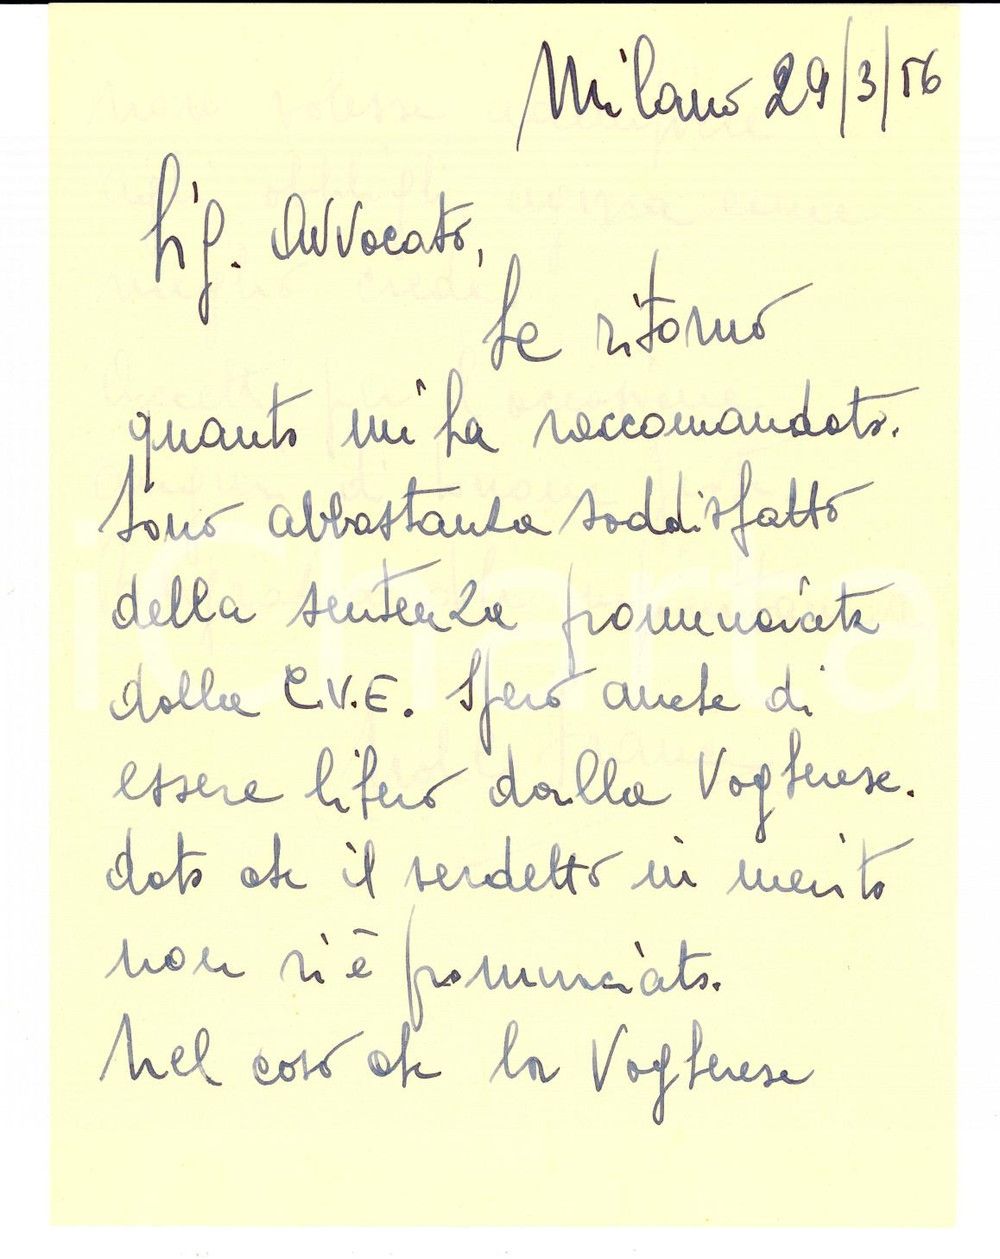 Milano 29/3/56
Sig. Avvocato,
Le ritorno
quanto mi ha raccomandato.
Sono abbastanza soddisfatto
della sentenza pronunciata
dalla C.V.E. Spero anche di
essere libero dalla Vogherese.
dato che il verdetto in merito
non si è pronunciato.
Nel caso che la Vogherese
iCharta